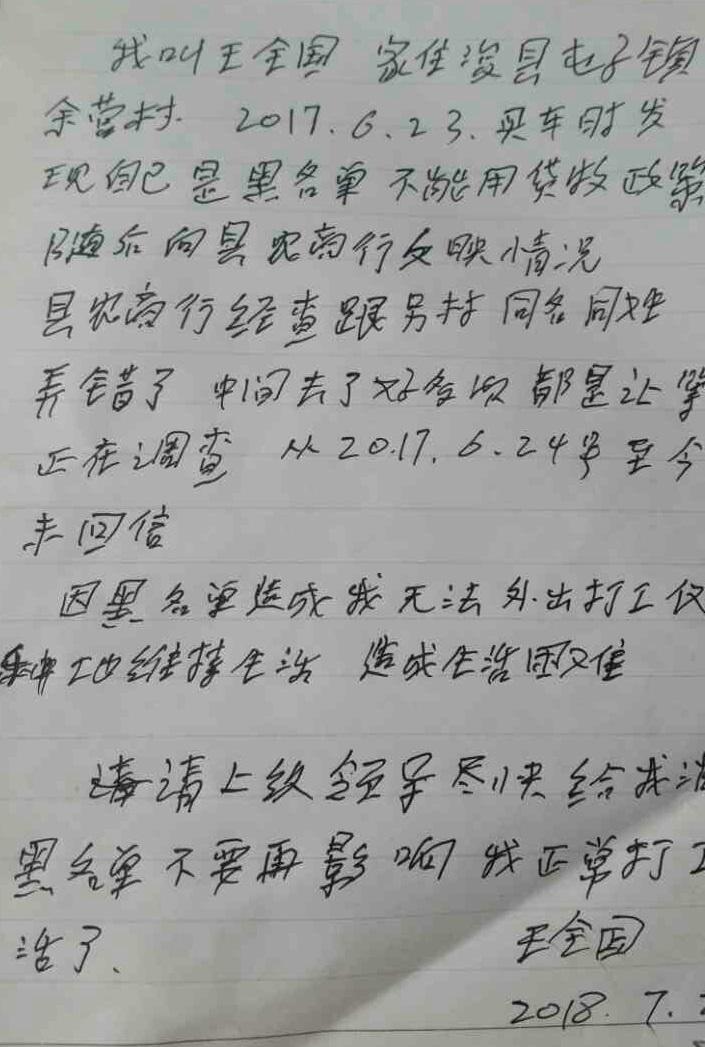 我叫王全国 家住浚县屯子镇
余营村. 2017.6.23.买车时发
现自已是黑名单 不能用贷款政策
随后向县农商行反映情况
县农商行经查跟另村同名同姓
弄错了 中间去了好多次都是让等
正在调查 从2017.6.24号至今
未回信
因黑名单造成我无法外出打工仅
种地维持生活 造成生活困难
请上级领导尽快给我消
黑名单不要再影响我正常打工
活了、
王全国
2018.7.